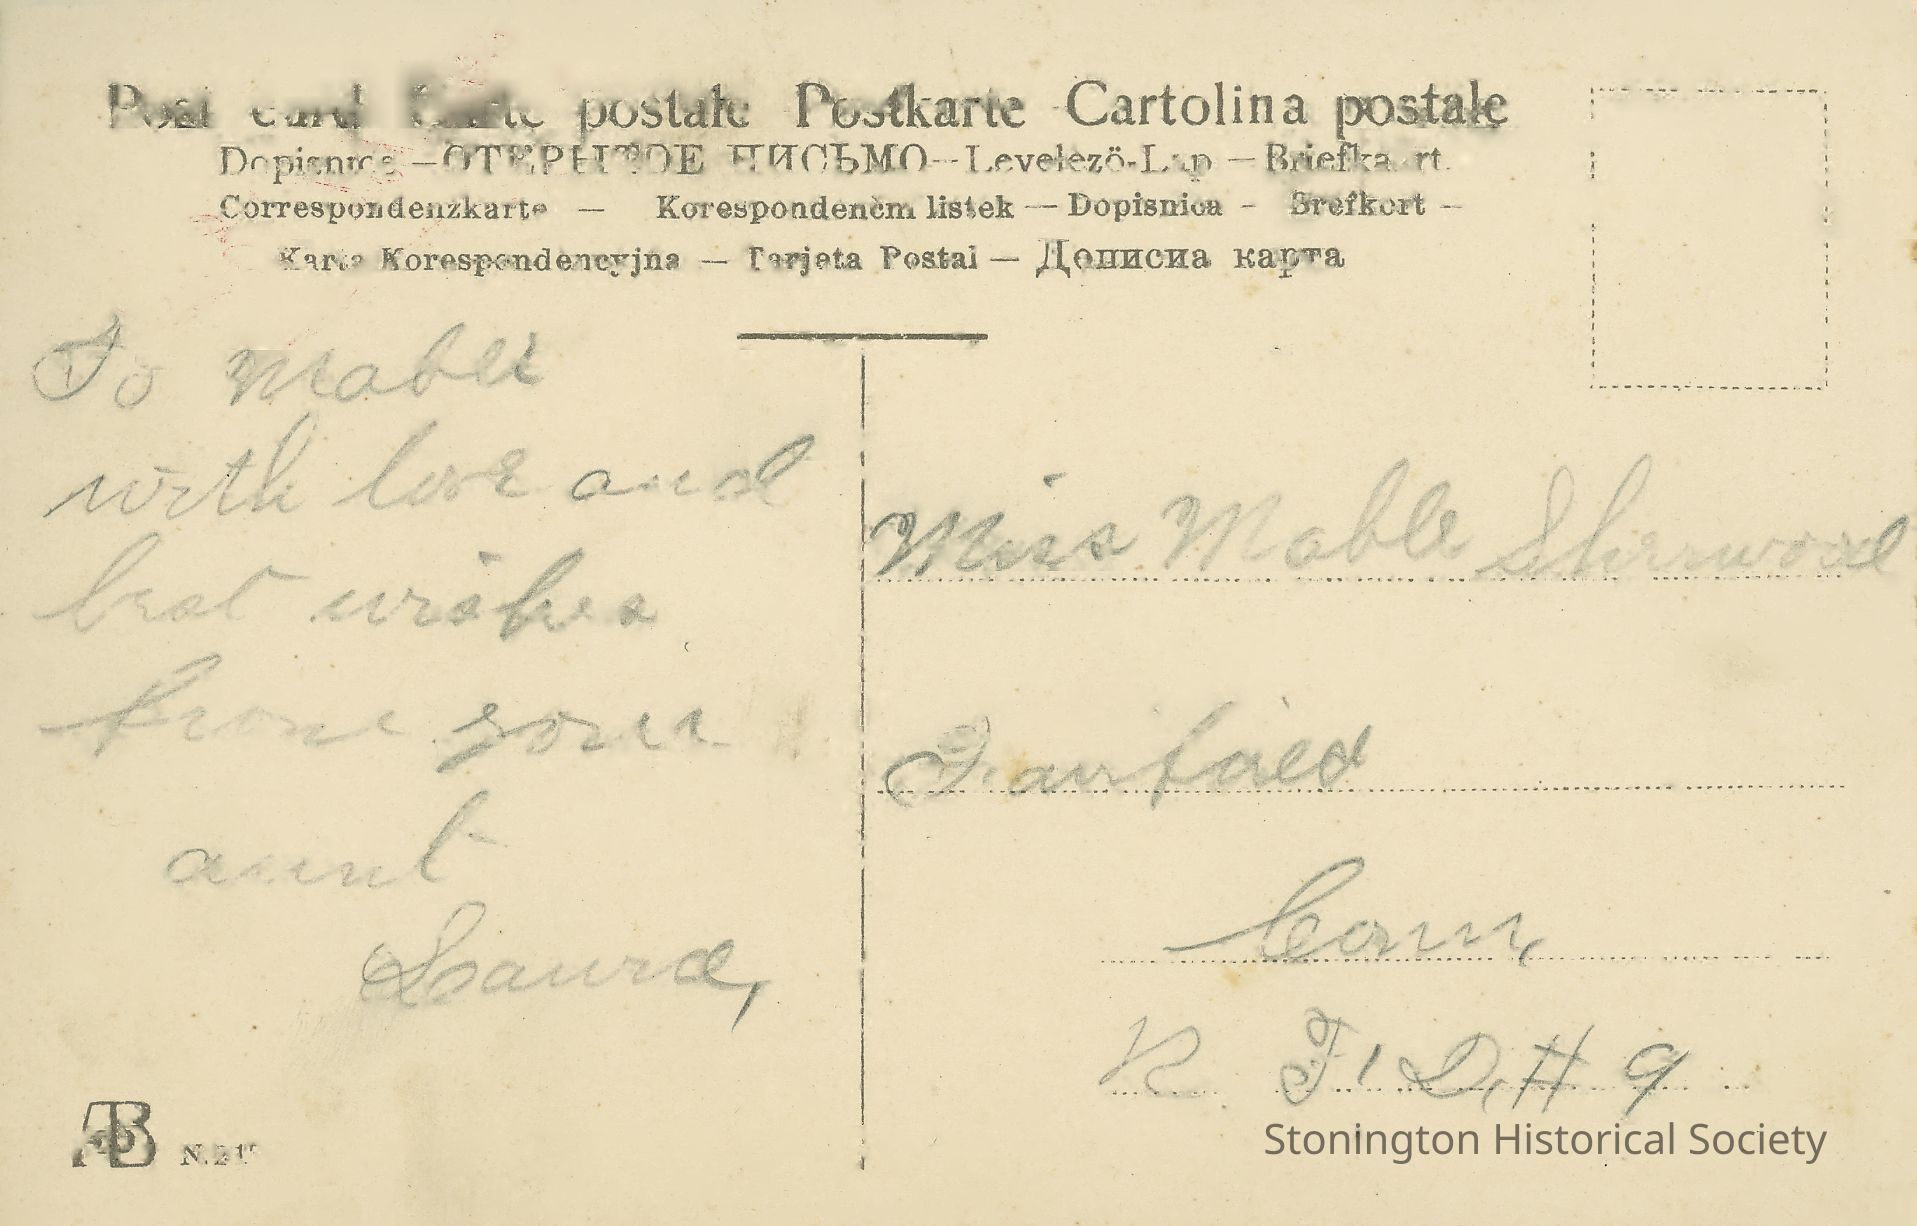 Post card Carte postale Postkarte Cartolina postale
Dopisnice — ОТКРЫТОЕ ПИСЬМО — Levelező-Lap — Briefkaart.
Correspondenzkarte — Korespondenčni listek — Dopisnica - Brefkort —
Karta Korespondencyjna — Tarjeta Postal — Дописна карта
To Mable
with love and
best wishes
from your
aunt
Laura,
Miss Mable Sherwood
Fairfield
Conn,
R F D, # 9
N.
Stonington Historical Society